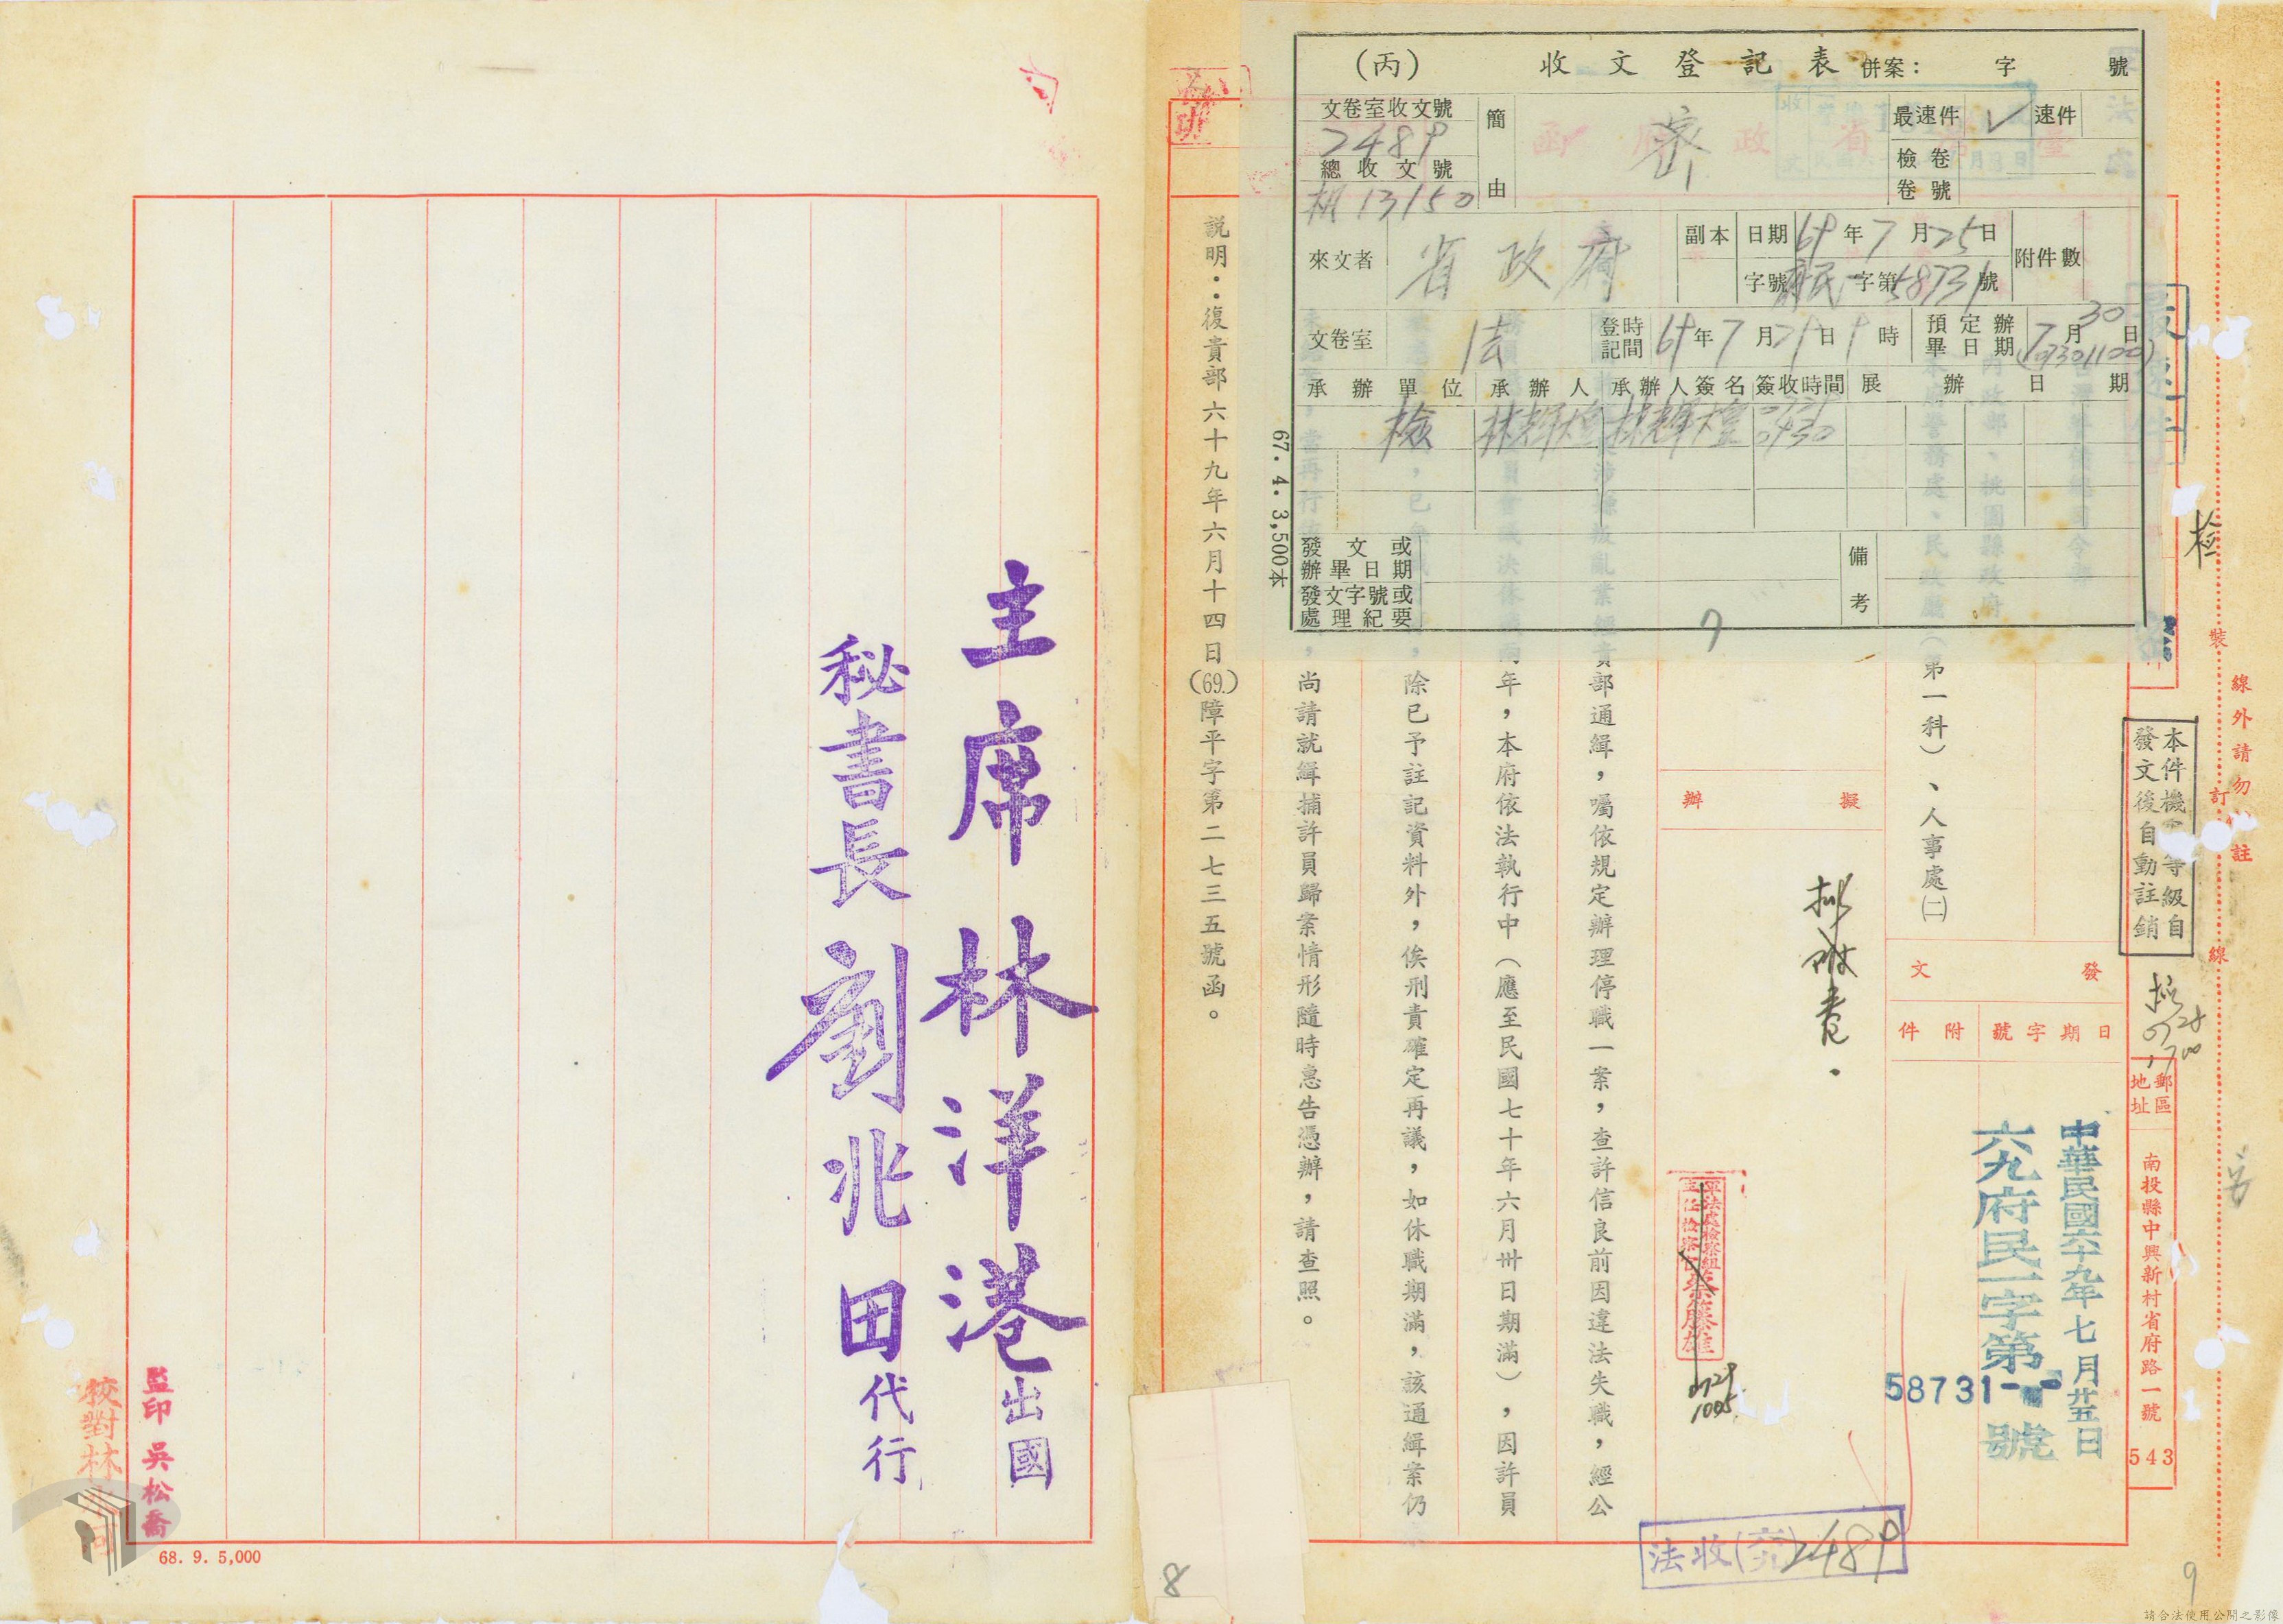 (丙) 收文登記表 併案： 字 號
文卷室收文號
2489
總收文號
胡13150
簡由
密
最速件 ✓ 速件
檢卷
卷號
來文者 省政府
副本 日期 69年7月25日
字號 府民一字第58731號
附件數
文卷室 法
登記時間 69年7月29日9時
預定辦畢日期 7月30日
(07301100)
承辦單位 承辦人 承辦人簽名 簽收時間 展辦日期
檢 林輝煌 林輝煌
發文或
辦畢日期
發文字號或
處理紀要
備考
67.4.3,500本
7
檢
裝
訂
線
線外請勿註
本件機
等級自
發文後自動註銷
擬
郵區
地址
南投縣中興新村省府路一號
543
發文
日期 字號 附件
中華民國六十九年七月廿五日
六九府民一字第
58731
號
(第一科)、人事處㈡
擬辦
擬附卷。
軍法處檢察組
蔡籐雄
0729
1005
貴部通緝，囑依規定辦理停職一案，查許信良前因違法失職，經公
年，本府依法執行中（應至民國七十年六月卅日期滿），因許員
除已予註記資料外，俟刑責確定再議，如休職期滿，該通緝案仍
，尚請就緝捕許員歸案情形隨時惠告憑辦，請查照。
說明：復貴部六十九年六月十四日(69.)障平字第二七三五號函。
法收(六九)2489
8
9
主席林洋港出國
秘書長劉兆田代行
監印 吳松喬
校對林
68. 9. 5,000
請合法使用公開之影像